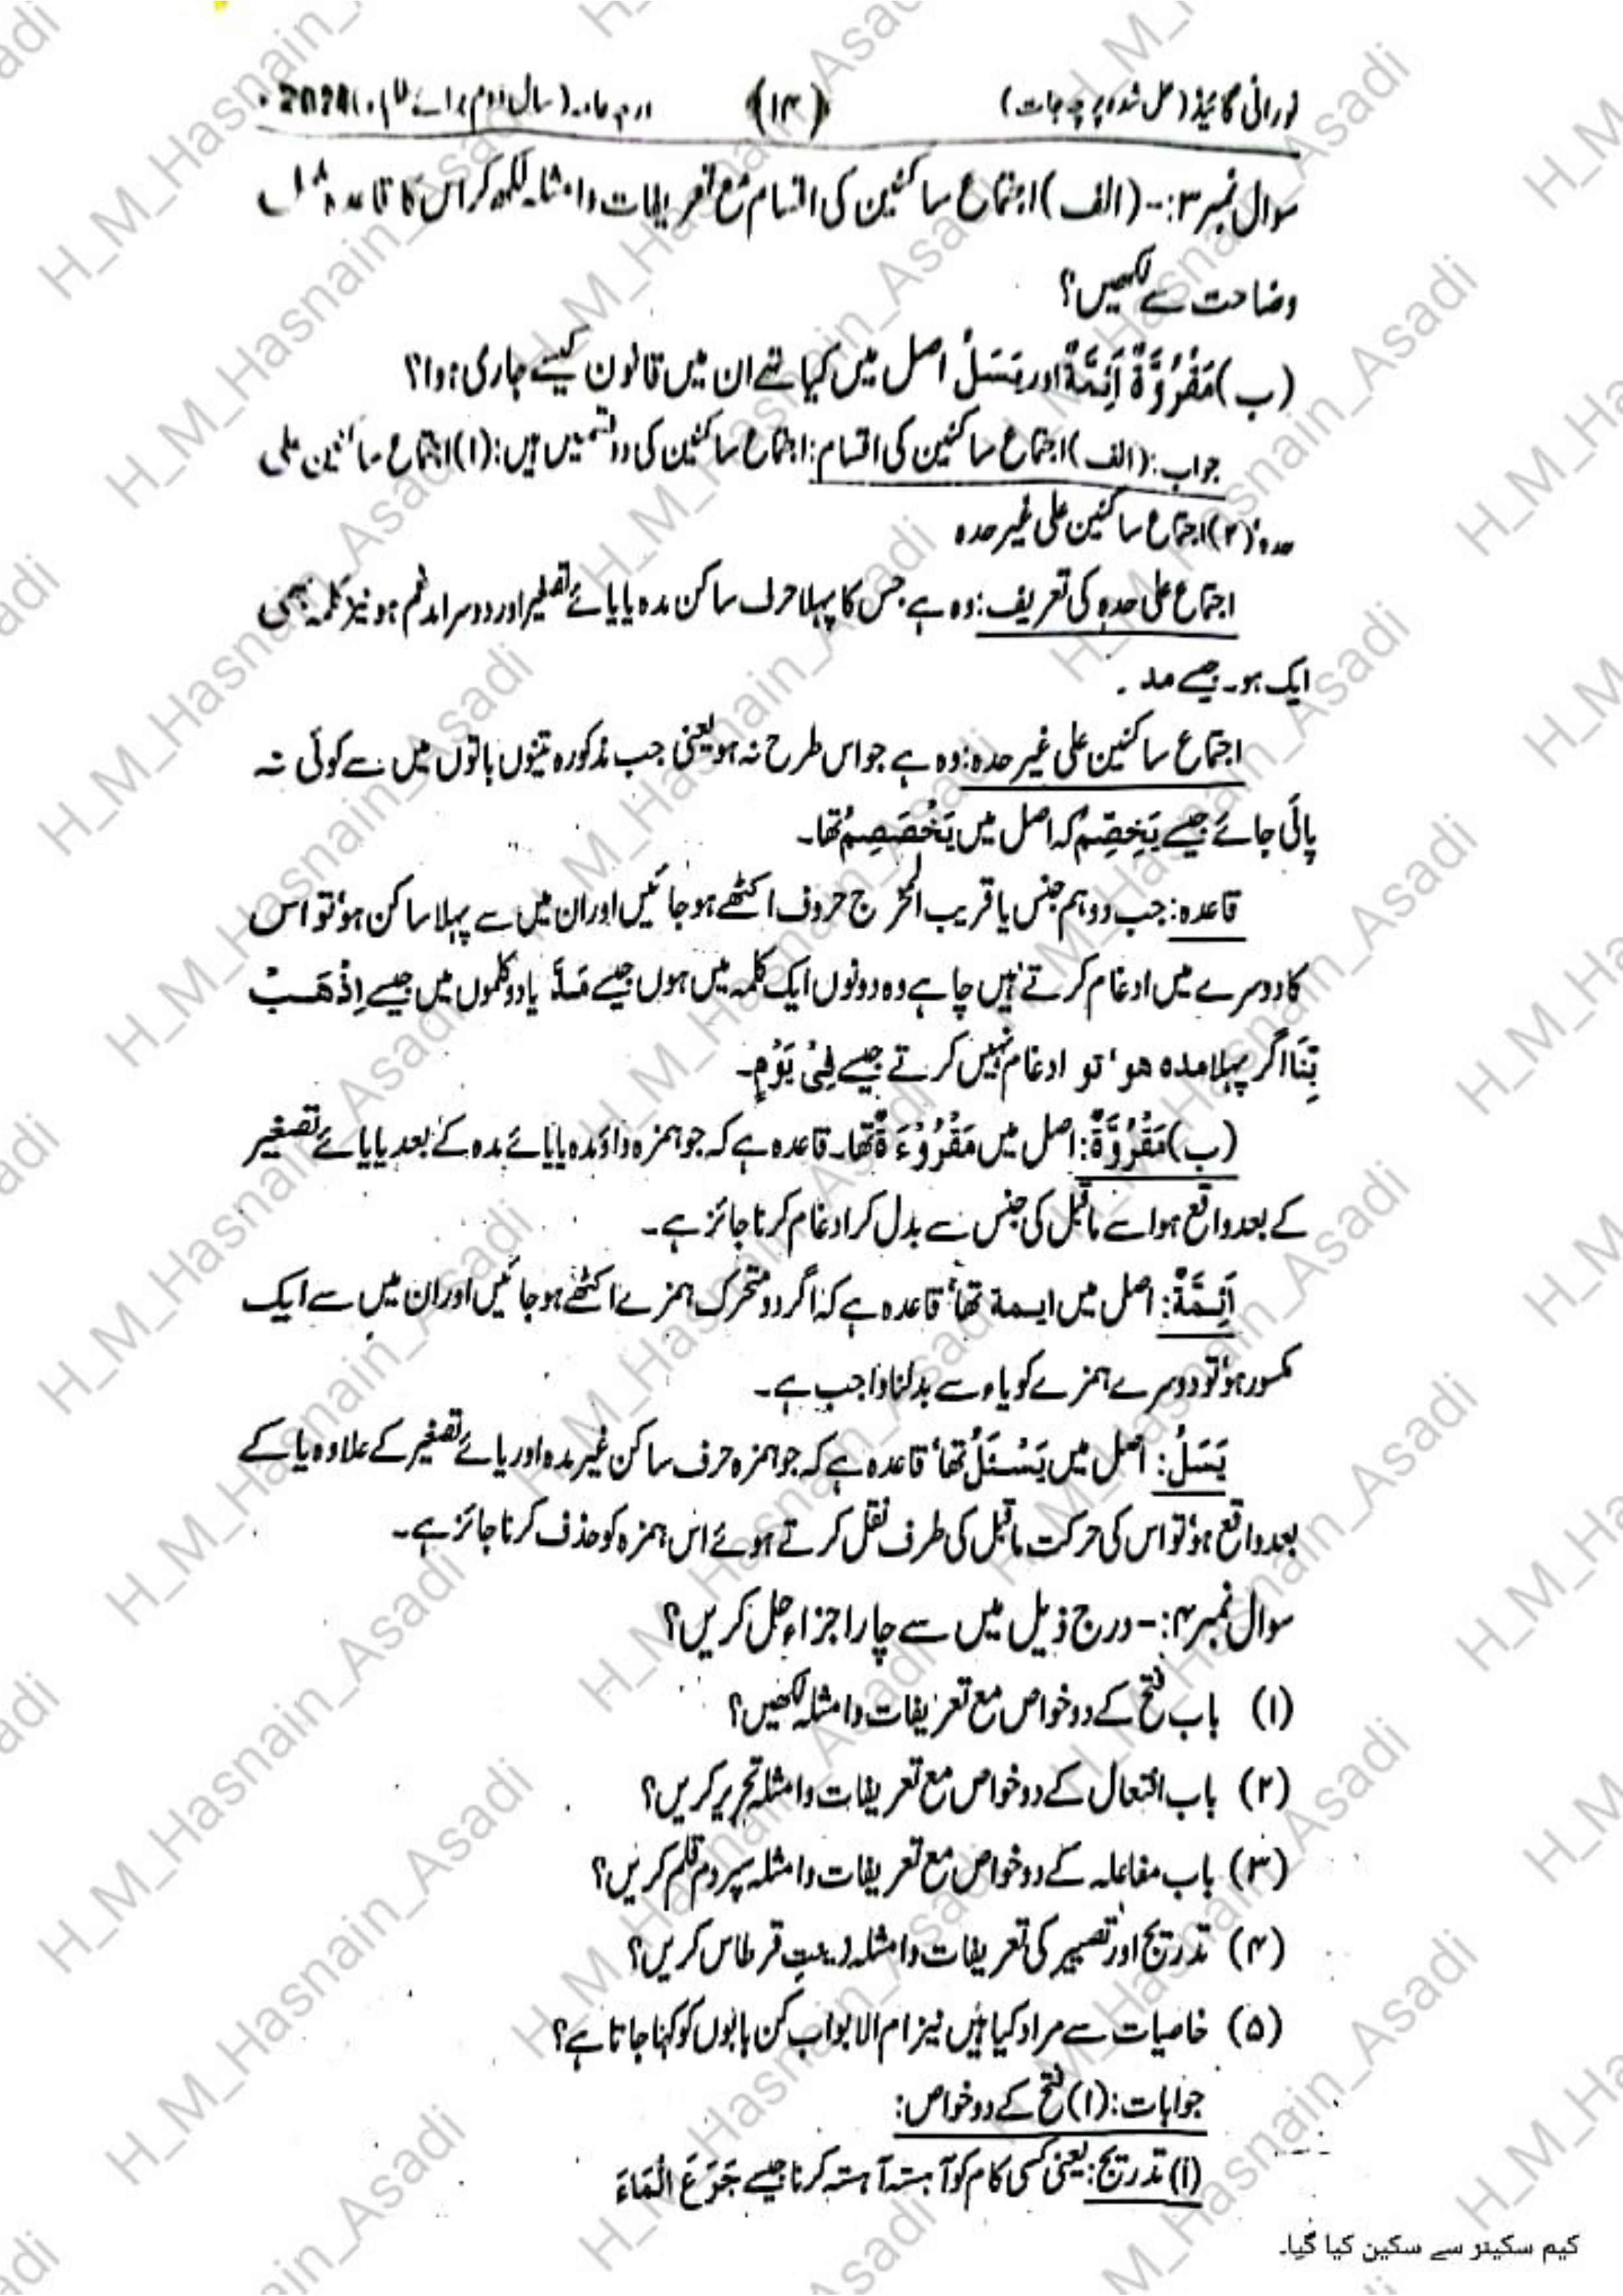 نورانی گائیڈ (حل شدہ پرچہ جات) (۱۴) درجہ عامہ (سال دوم برائے طلباء) 2024ء
سوال نمبر ۳:- (الف) اجتماع ساکنین کی اقسام مع تعریفات و امثلہ لکھ کر اس کا قاعدہ
وضاحت سے لکھیں؟
(ب) مَقْرُوَّةٌ اَئِمَّةٌ اور يَسَلُ اصل میں کیا تھے ان میں قانون کیسے جاری ہوا؟
جواب: (الف) اجتماع ساکنین کی اقسام: اجتماع ساکنین کی دو قسمیں ہیں: (۱) اجتماع ساکنین علی
حدہ، (۲) اجتماع ساکنین علی غیر حدہ
اجتماع علی حدہ کی تعریف: وہ ہے جس کا پہلا حرف ساکن مدہ یا یائے تصغیر اور دوسرا مدغم ہو نیز کلمہ بھی
ایک ہو۔ جیسے مد۔
اجتماع ساکنین علی غیر حدہ: وہ ہے جو اس طرح نہ ہو یعنی جب مذکورہ تینوں باتوں میں سے کوئی نہ
پائی جائے جیسے يَخِصِّمُ کہ اصل میں يَخْصَصِمُ تھا۔
قاعدہ: جب دو ہم جنس یا قریب المخرج حروف اکٹھے ہو جائیں اور ان میں سے پہلا ساکن ہو تو اس
کا دوسرے میں ادغام کرتے ہیں چاہے وہ دونوں ایک کلمہ میں ہوں جیسے مَدٌّ یا دو کلموں میں جیسے اِذْهَبْ
بِّنَا اگر پہلا مدہ ہو، تو ادغام نہیں کرتے جیسے فِيْ يَوْمٍ۔
(ب) مَقْرُوَّةٌ: اصل میں مَقْرُوْءَةٌ تھا۔ قاعدہ ہے کہ جو ہمزہ واؤ مدہ یا یائے مدہ کے بعد یا یائے تصغیر
کے بعد واقع ہو اسے ماقبل کی جنس سے بدل کر ادغام کرنا جائز ہے۔
اَئِمَّةٌ: اصل میں ایسمۃ تھا، قاعدہ ہے کہ اگر دو متحرک ہمزے اکٹھے ہو جائیں اور ان میں سے ایک
مکسور ہو تو دوسرے ہمزے کو یاء سے بدلنا واجب ہے۔
يَسَلُ: اصل میں يَسْئَلُ تھا، قاعدہ ہے کہ جو ہمزہ حرف ساکن غیر مدہ اور یائے تصغیر کے علاوہ یا کے
بعد واقع ہو تو اس کی حرکت ماقبل کی طرف نقل کرتے ہوئے اس ہمزہ کو حذف کرنا جائز ہے۔
سوال نمبر ۴:- درج ذیل میں سے چار اجزاء حل کریں؟
(۱) باب فتح کے دو خواص مع تعریفات و امثلہ لکھیں؟
(۲) باب افتعال کے دو خواص مع تعریفات و امثلہ تحریر کریں؟
(۳) باب مفاعلہ کے دو خواص مع تعریفات و امثلہ سپرد قلم کریں؟
(۴) تدریج اور تصییر کی تعریفات و امثلہ زینت قرطاس کریں؟
(۵) خاصیات سے مراد کیا ہیں نیز ام الابواب کن بابوں کو کہا جاتا ہے؟
جوابات: (۱) فتح کے دو خواص:
(i) تدریج: یعنی کسی کام کو آہستہ آہستہ کرنا جیسے جَرَعَ الْمَاءَ
کیم سکینر سے سکین کیا گیا۔
H_M_Hasnain_Asadi